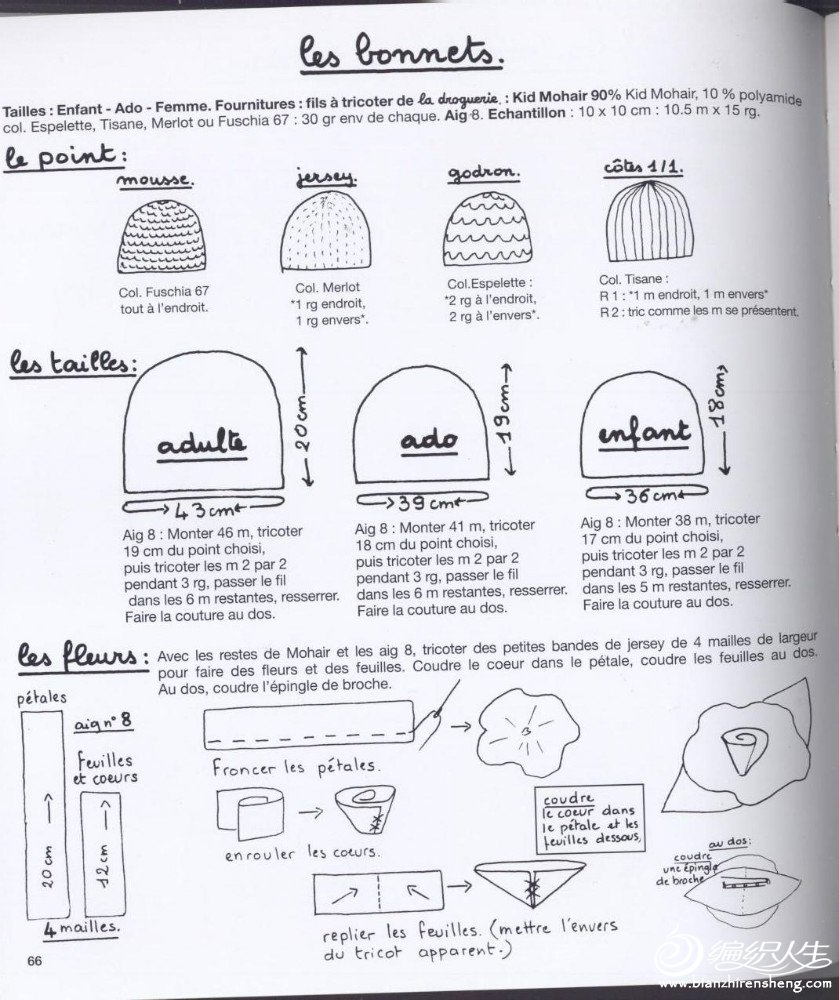 les bonnets.
Tailles : Enfant - Ado - Femme. Fournitures : fils à tricoter de la droguerie. : Kid Mohair 90% Kid Mohair, 10 % polyamide
col. Espelette, Tisane, Merlot ou Fuschia 67 : 30 gr env de chaque. Aig 8. Echantillon : 10 x 10 cm : 10.5 m x 15 rg.
le point :
mousse.
jersey.
godron.
côtes 1/1.
Col. Fuschia 67
tout à l'endroit.
Col. Merlot
*1 rg endroit,
1 rg envers*.
Col.Espelette :
*2 rg à l'endroit,
2 rg à l'envers*.
Col. Tisane :
R 1 : *1 m endroit, 1 m envers*
R 2 : tric comme les m se présentent.
les tailles :
adulte
20 cm
43 cm
ado
19 cm
39 cm
enfant
18 cm
36 cm
Aig 8 : Monter 46 m, tricoter
19 cm du point choisi,
puis tricoter les m 2 par 2
pendant 3 rg, passer le fil
dans les 6 m restantes, resserrer.
Faire la couture au dos.
Aig 8 : Monter 41 m, tricoter
18 cm du point choisi,
puis tricoter les m 2 par 2
pendant 3 rg, passer le fil
dans les 6 m restantes, resserrer.
Faire la couture au dos.
Aig 8 : Monter 38 m, tricoter
17 cm du point choisi,
puis tricoter les m 2 par 2
pendant 3 rg, passer le fil
dans les 5 m restantes, resserrer.
Faire la couture au dos.
les fleurs : Avec les restes de Mohair et les aig 8, tricoter des petites bandes de jersey de 4 mailles de largeur
pour faire des fleurs et des feuilles. Coudre le coeur dans le pétale, coudre les feuilles au dos.
Au dos, coudre l'épingle de broche.
pétales
aig n° 8
feuilles
et coeurs
20 cm
12 cm
4 mailles.
froncer les pétales.
enrouler les coeurs.
coudre
le coeur dans
le pétale et les
feuilles dessous,
au dos :
coudre
une épingle
de broche
replier les feuilles. (mettre l'envers
du tricot apparent.)
66
编织人生
www.bianzhirensheng.com